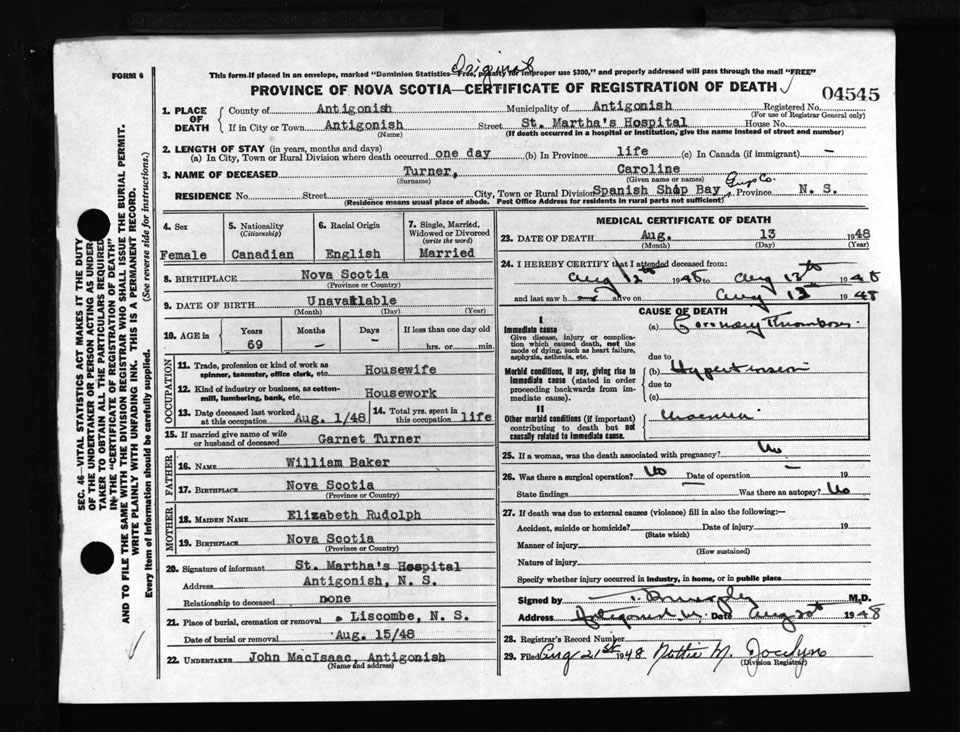 Original
FORM 6
This form if placed in an envelope, marked "Dominion Statistics—Free, penalty for improper use $300," and properly addressed will pass through the mail "FREE"
PROVINCE OF NOVA SCOTIA—CERTIFICATE OF REGISTRATION OF DEATH
04545
1. PLACE OF DEATH
County of Antigonish Municipality of Antigonish Registered No.
(For use of Registrar General only)
If in City or Town Antigonish Street St. Martha's Hospital House No.
(Name) (If death occurred in a hospital or institution, give the name instead of street and number)
2. LENGTH OF STAY (in years, months and days)
(a) In City, Town or Rural Division where death occurred one day (b) In Province life (c) In Canada (if immigrant) —
3. NAME OF DECEASED Turner, Caroline
(Surname) (Given name or names)
Guys Co.
RESIDENCE No. Street City, Town or Rural Division Spanish Ship Bay Province N. S.
(Residence means usual place of abode. Post Office Address for residents in rural parts not sufficient)
4. Sex
Female
5. Nationality
(Citizenship)
Canadian
6. Racial Origin
English
7. Single, Married, Widowed or Divorced
(write the word)
Married
8. BIRTHPLACE Nova Scotia
(Province or Country)
9. DATE OF BIRTH Unavailable
(Month) (Day) (Year)
10. AGE in Years Months Days If less than one day old
69 — — hrs. or min.
OCCUPATION
11. Trade, profession or kind of work as spinner, teamster, office clerk, etc. Housewife
12. Kind of industry or business, as cotton-mill, lumbering, bank, etc. Housework
13. Date deceased last worked at this occupation Aug. 1/48
14. Total yrs. spent in this occupation life
15. If married give name of wife or husband of deceased Garnet Turner
FATHER
16. NAME William Baker
17. BIRTHPLACE Nova Scotia
(Province or Country)
MOTHER
18. MAIDEN NAME Elizabeth Rudolph
19. BIRTHPLACE Nova Scotia
(Province or Country)
20. Signature of informant St. Martha's Hospital
Address Antigonish, N. S.
Relationship to deceased none
21. Place of burial, cremation or removal Liscombe, N. S.
Date of burial or removal Aug. 15/48
22. UNDERTAKER John MacIsaac, Antigonish
(Name and address)
MEDICAL CERTIFICATE OF DEATH
23. DATE OF DEATH Aug. 13 1948
(Month) (Day) (Year)
24. I HEREBY CERTIFY that I attended deceased from:
Aug 12th 1948 to Aug 13th 1948
and last saw h alive on Aug 13 1948
CAUSE OF DEATH
I
Immediate cause
Give disease, injury or complication which caused death, not the mode of dying, such as heart failure, asphyxia, asthenia, etc.
(a) Coronary Thrombosis
due to
Morbid conditions, if any, giving rise to immediate cause (stated in order proceeding backwards from immediate cause).
(b) Hypertension
due to
(c)
II
Other morbid conditions (if important) contributing to death but not causally related to immediate cause.
25. If a woman, was the death associated with pregnancy? No
26. Was there a surgical operation? No Date of operation — 19
State findings — Was there an autopsy? No
27. If death was due to external causes (violence) fill in also the following:—
Accident, suicide or homicide? Date of injury 19
(State which)
Manner of injury
(How sustained)
Nature of injury
Specify whether injury occurred in industry, in home, or in public place
Signed by Murphy M.D.
Address Antigonish Date Aug 20th 1948
28. Registrar's Record Number
29. Filed Aug 21st 1948 Nettie M. Jocelyn
(Division Registrar)
SEC. 46—VITAL STATISTICS ACT MAKES IT THE DUTY
OF THE UNDERTAKER OR PERSON ACTING AS UNDER-
TAKER TO OBTAIN ALL THE PARTICULARS REQUIRED
IN THE "CERTIFICATE OF REGISTRATION OF DEATH"
AND TO FILE THE SAME WITH THE DIVISION REGISTRAR WHO SHALL ISSUE THE BURIAL PERMIT.
WRITE PLAINLY WITH UNFADING INK. THIS IS A PERMANENT RECORD.
Every item of information should be carefully supplied. (See reverse side for instructions.)